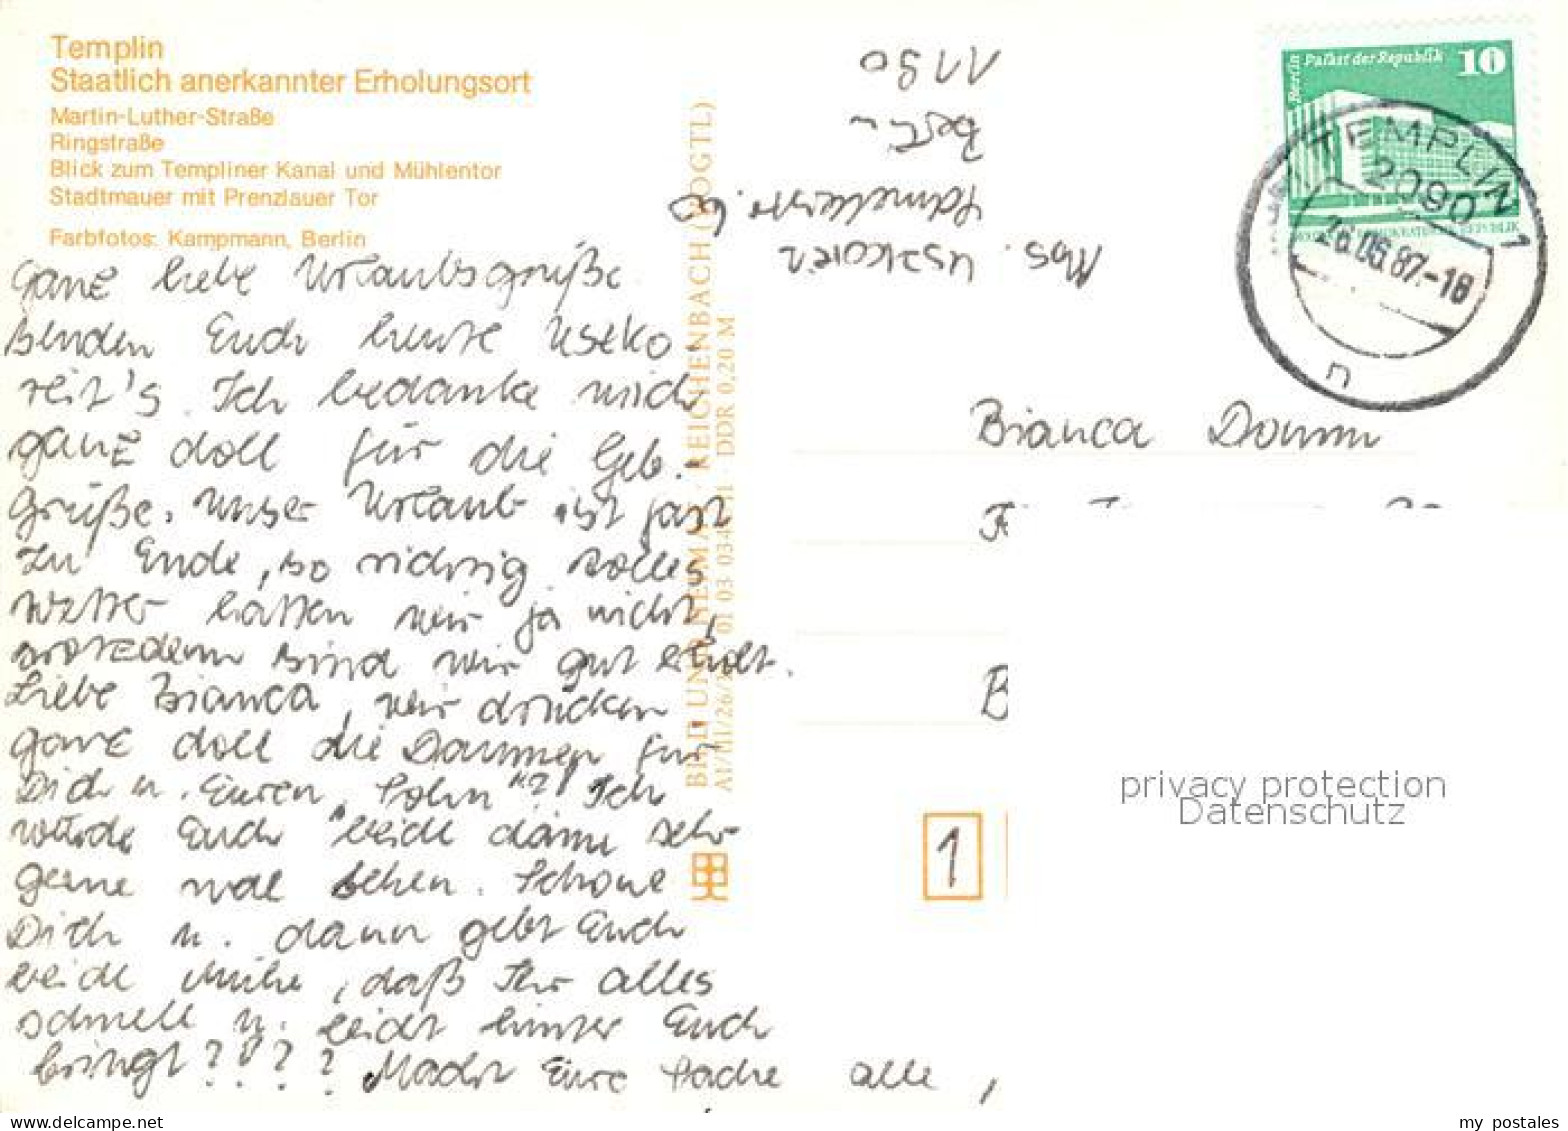 Templin
Staatlich anerkannter Erholungsort
Martin-Luther-Straße
Ringstraße
Blick zum Templiner Kanal und Mühlentor
Stadtmauer mit Prenzlauer Tor
Farbfotos: Kampmann, Berlin
Ganz liebe Urlaubsgrüße
senden Euch heute Uszko-
reit's. Ich bedanke mich
ganz doll für die Geb.-
grüße. Unser Urlaub ist fast
zu Ende, so richtig tolles
Wetter hatten wir ja nicht,
trotzdem sind wir gut erholt.
Liebe Bianca, wir drücken
ganz doll die Daumen für
Dich u. Euren "Sohn"?! Ich
würde Euch beide dann sehr
gerne mal sehen. Schone
Dich u. dann gebt Euch
beide Mühe, daß Ihr alles
schnell u. leicht hinter Euch
bringt???? Macht Eure Sache alle,
BILD UND HEIMAT REICHENBACH (VOGTL)
01 03 03 DDR 0,20 M
Abs. Uszkoreit
60
Berlin
1190
Berlin Palast der Republik 10
TEMPLIN 1
2090
26.06.87.-18
n
Bianca Damm
F
B
1
privacy protection
Datenschutz
my postales